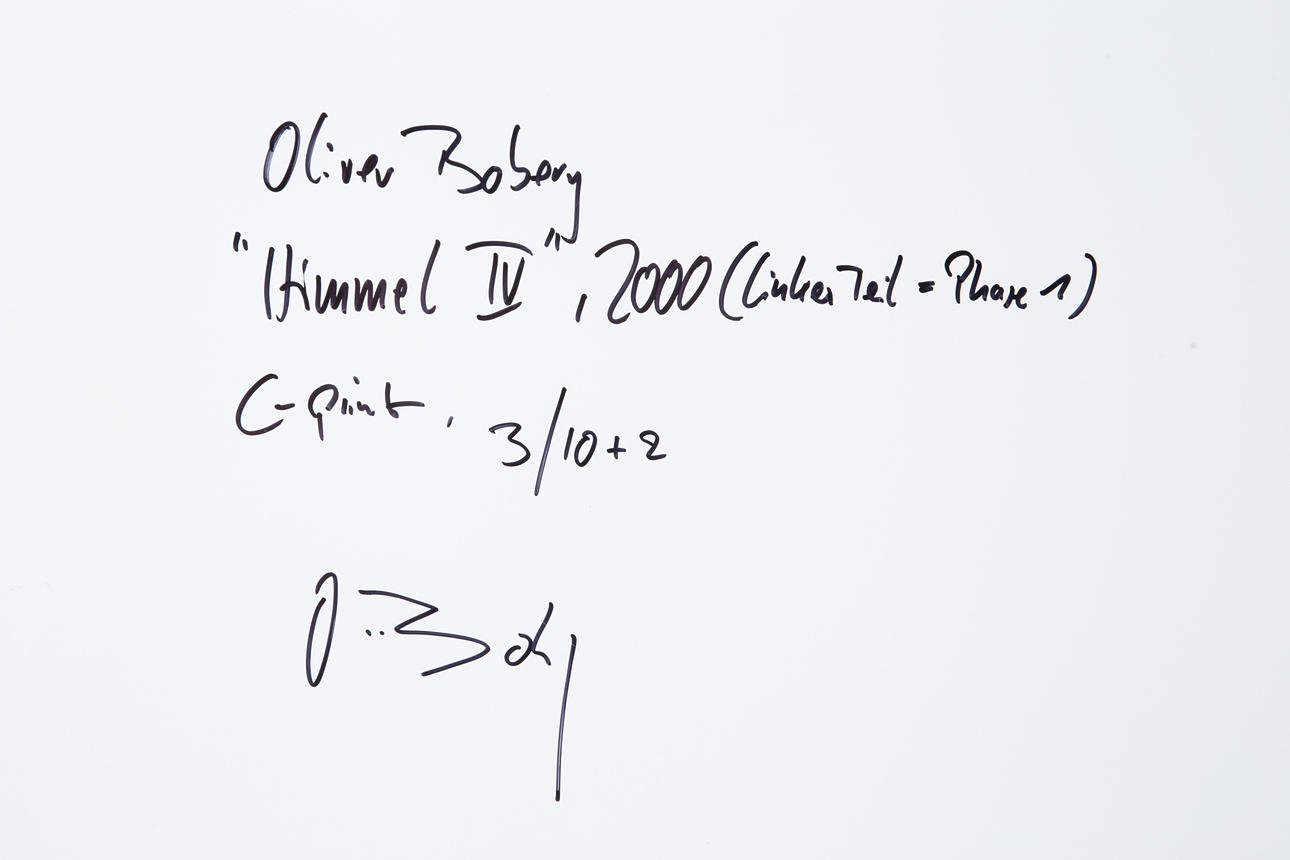 Oliver Boberg
"Himmel IV", 2000 (linker Teil = Phase 1)
C-print, 3/10+2
O. Boberg